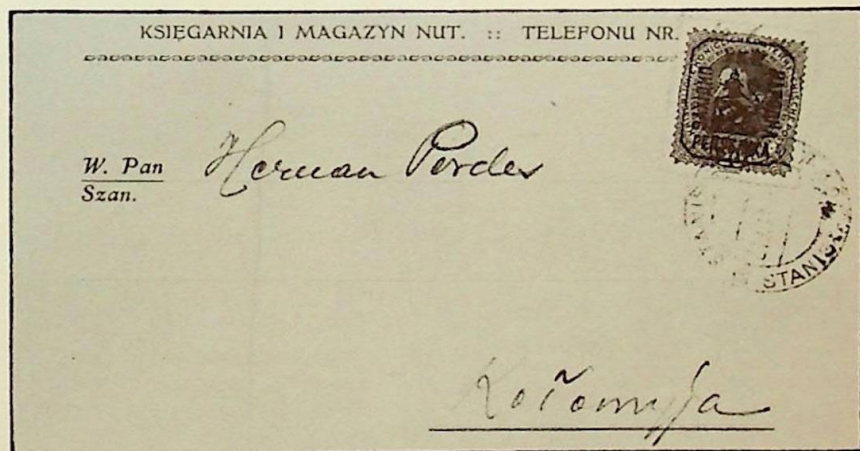 KSIĘGARNIA I MAGAZYN NUT. :: TELEFONU NR.
W. Pan Herman
Szan.
STANIS
Kołomyja